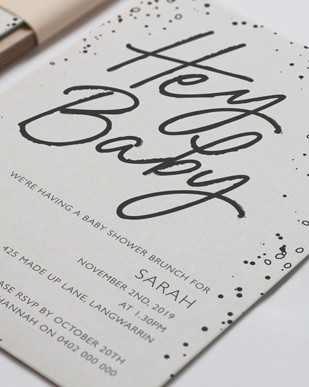 Hey
Baby
WE'RE HAVING A BABY SHOWER BRUNCH FOR
SARAH
NOVEMBER 2ND, 2019
AT 1.30PM
425 MADE UP LANE, LANGWARRIN
RSVP BY OCTOBER 20TH
HANNAH ON 0402 000 000